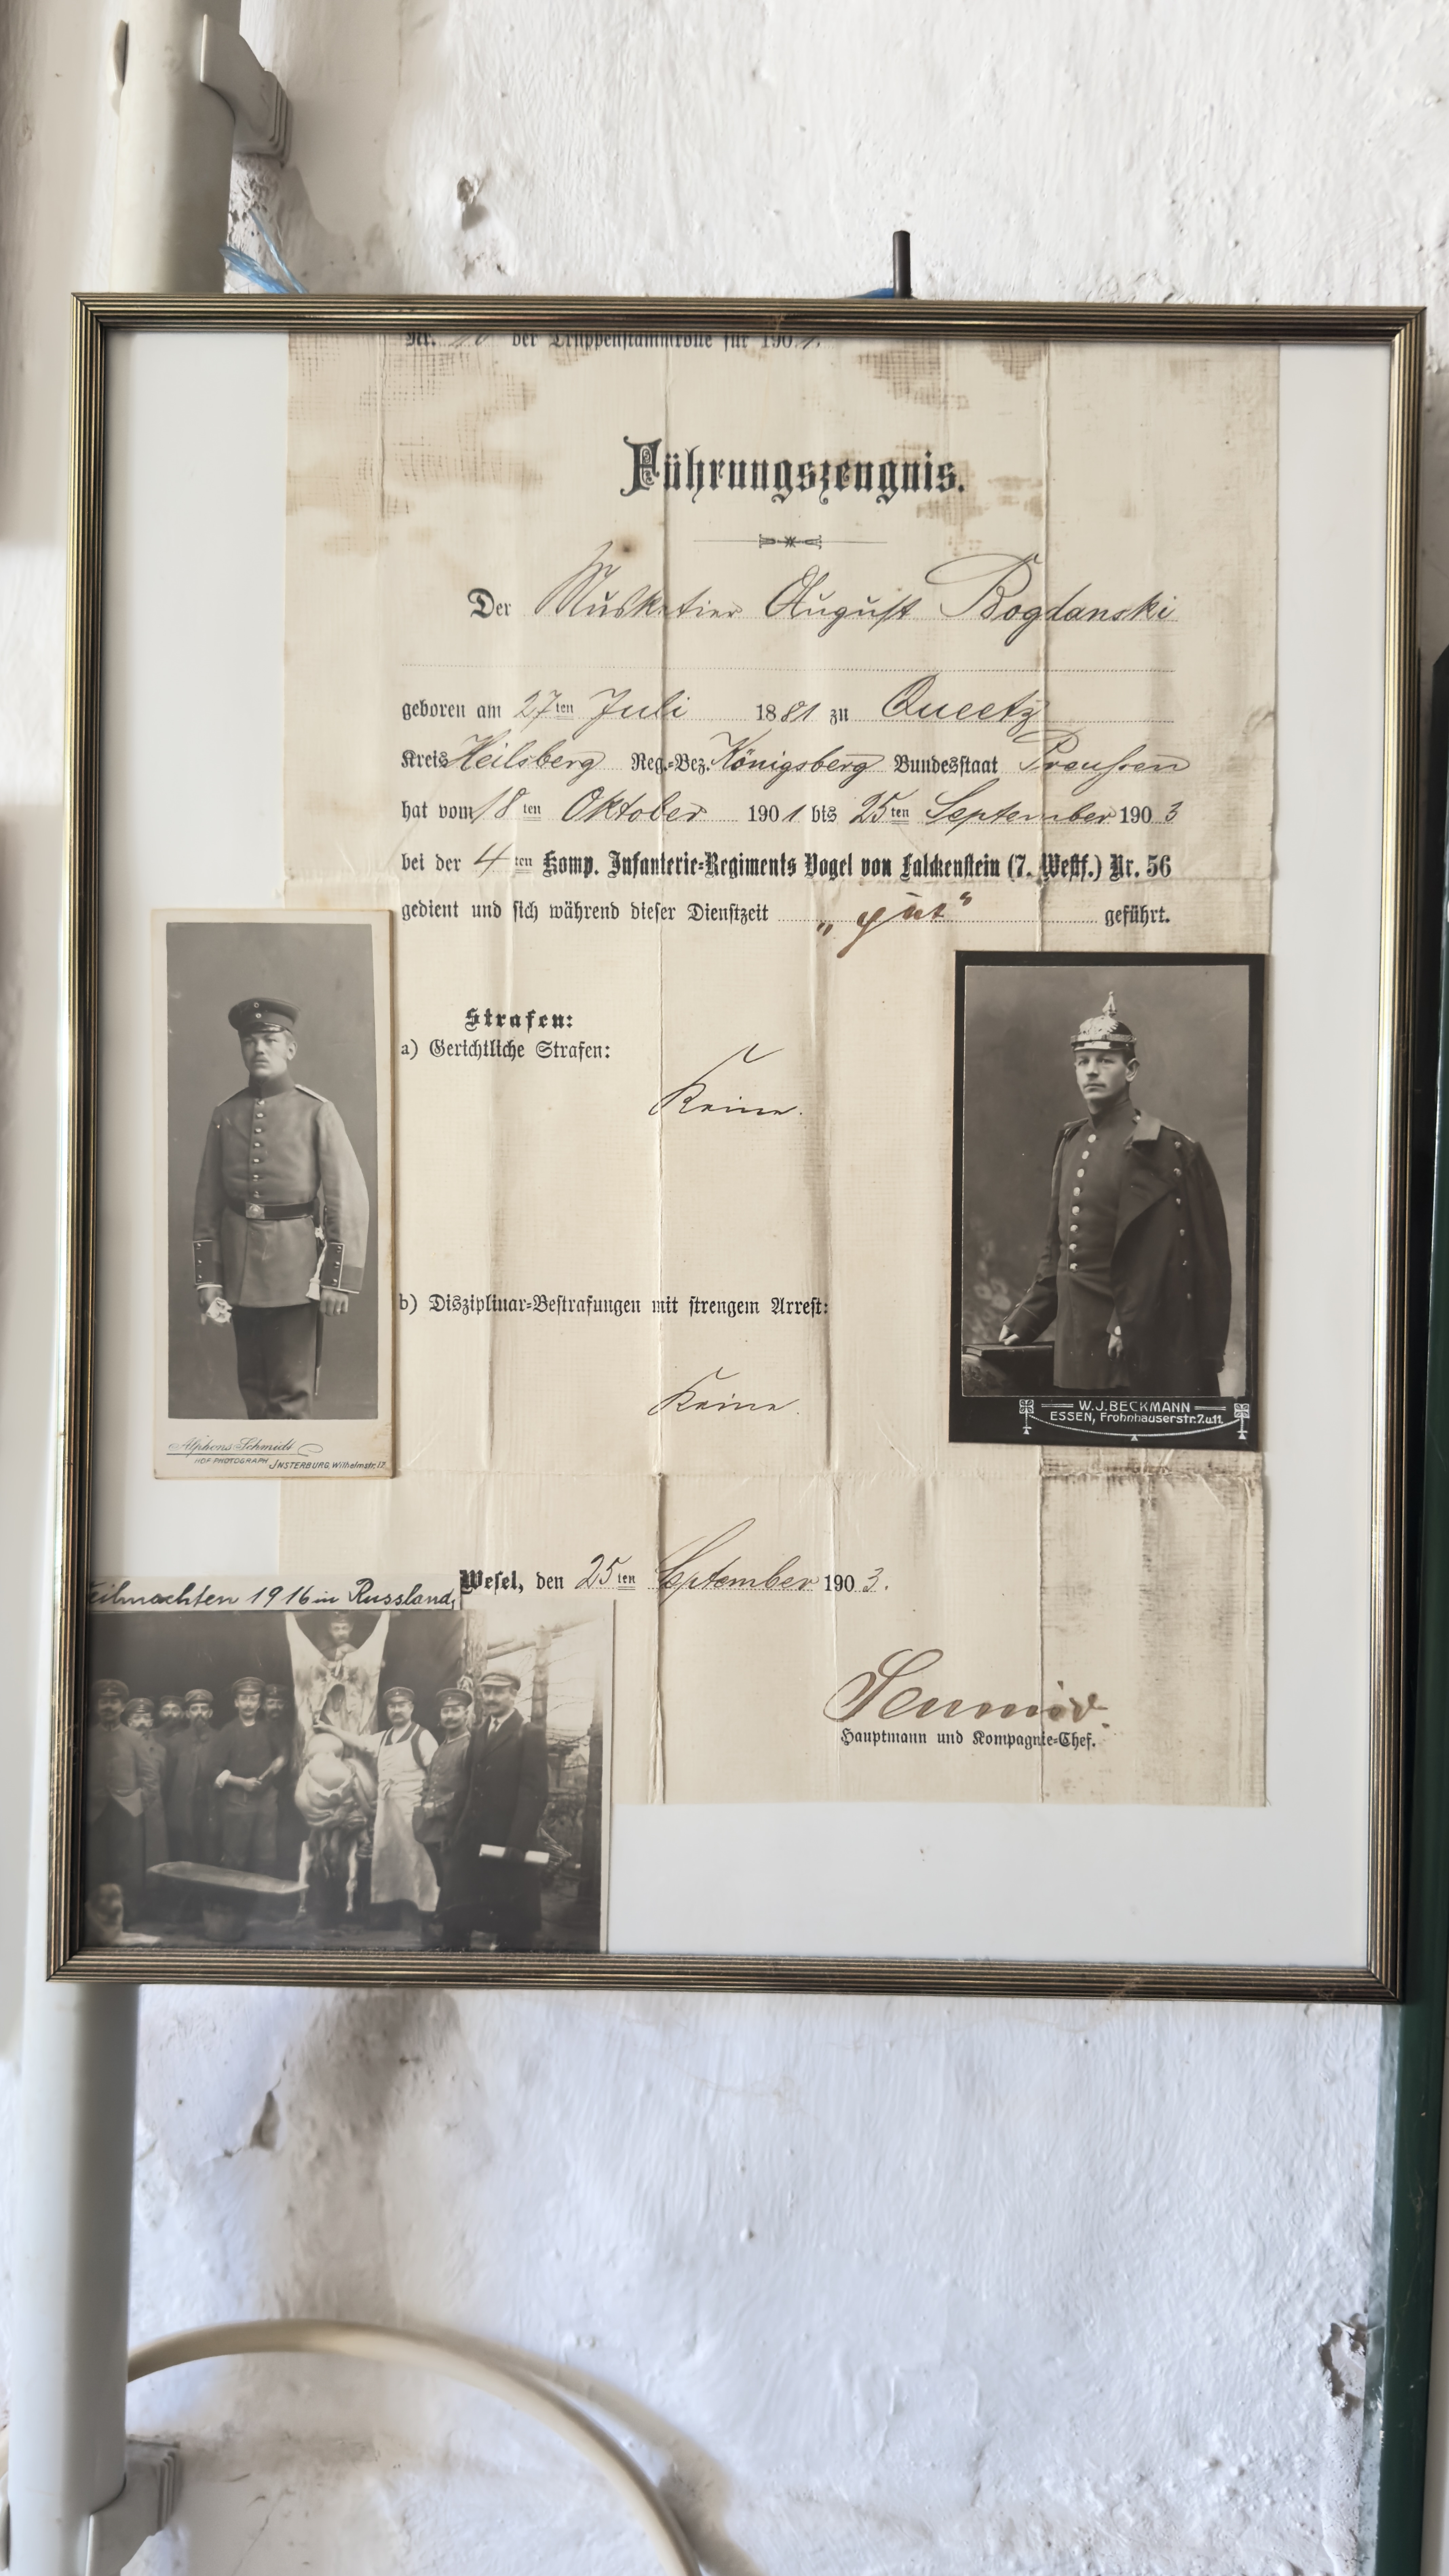 Nr. der Truppenstammrolle für 1901.
Führungszeugnis.
Der Musketier August Bogdanski
geboren am 27ten Juli 1881 zu Queetz
Kreis Heilsberg Reg.-Bez. Königsberg Bundesstaat Preußen
hat vom 18ten Oktober 1901 bis 25ten September 1903
bei der 4ten Komp. Infanterie-Regiments Vogel von Falckenstein (7. Westf.) Nr. 56
gedient und sich während dieser Dienstzeit „gut“ geführt.
Strafen:
a) Gerichtliche Strafen:
Keine.
b) Disziplinar-Bestrafungen mit strengem Arrest:
Keine.
Wesel, den 25ten September 1903.
Hauptmann und Kompagnie-Chef.
Alphons Schmidt
HOF PHOTOGRAPH, INSTERBURG, Wilhelmstr. 12.
W. J. BECKMANN
ESSEN, Frohnhauserstr. 7 u. 11.
eihnachten 1916 in Russland,